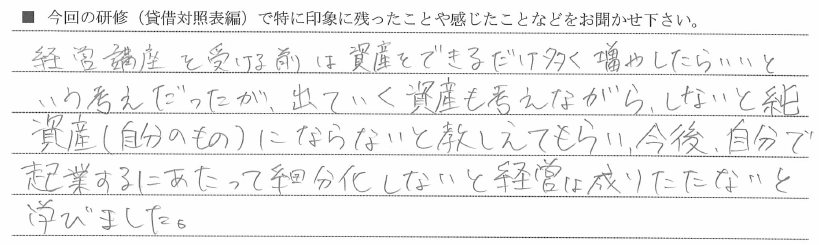 ■ 今回の研修（貸借対照表編）で特に印象に残ったことや感じたことなどをお聞かせ下さい。
経営講座を受ける前は資産をできるだけ多く増やしたらいいと
いう考えだったが、出ていく資産も考えながら、しないと純
資産(自分のもの)にならないと教しえてもらい、今後、自分で
起業するにあたって細分化しないと経営は成りたたないと
学びました。